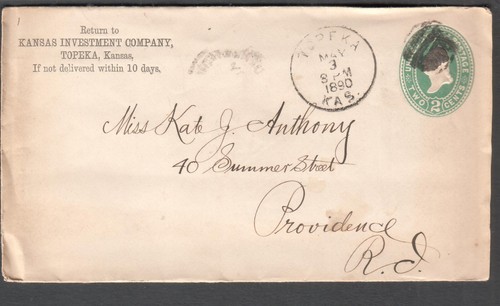 Return to
KANSAS INVESTMENT COMPANY,
TOPEKA, Kansas,
If not delivered within 10 days.
TOPEKA
MAY
3
8 PM
1890
KAS.
TWO 2 CENTS
Miss Kate J. Anthony
40 Summer Street
Providence
R.I.